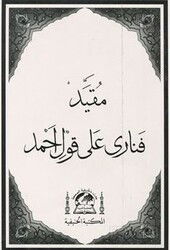 مقيَّد
فنارى على قول أحمد
المكتبة الحنيفية